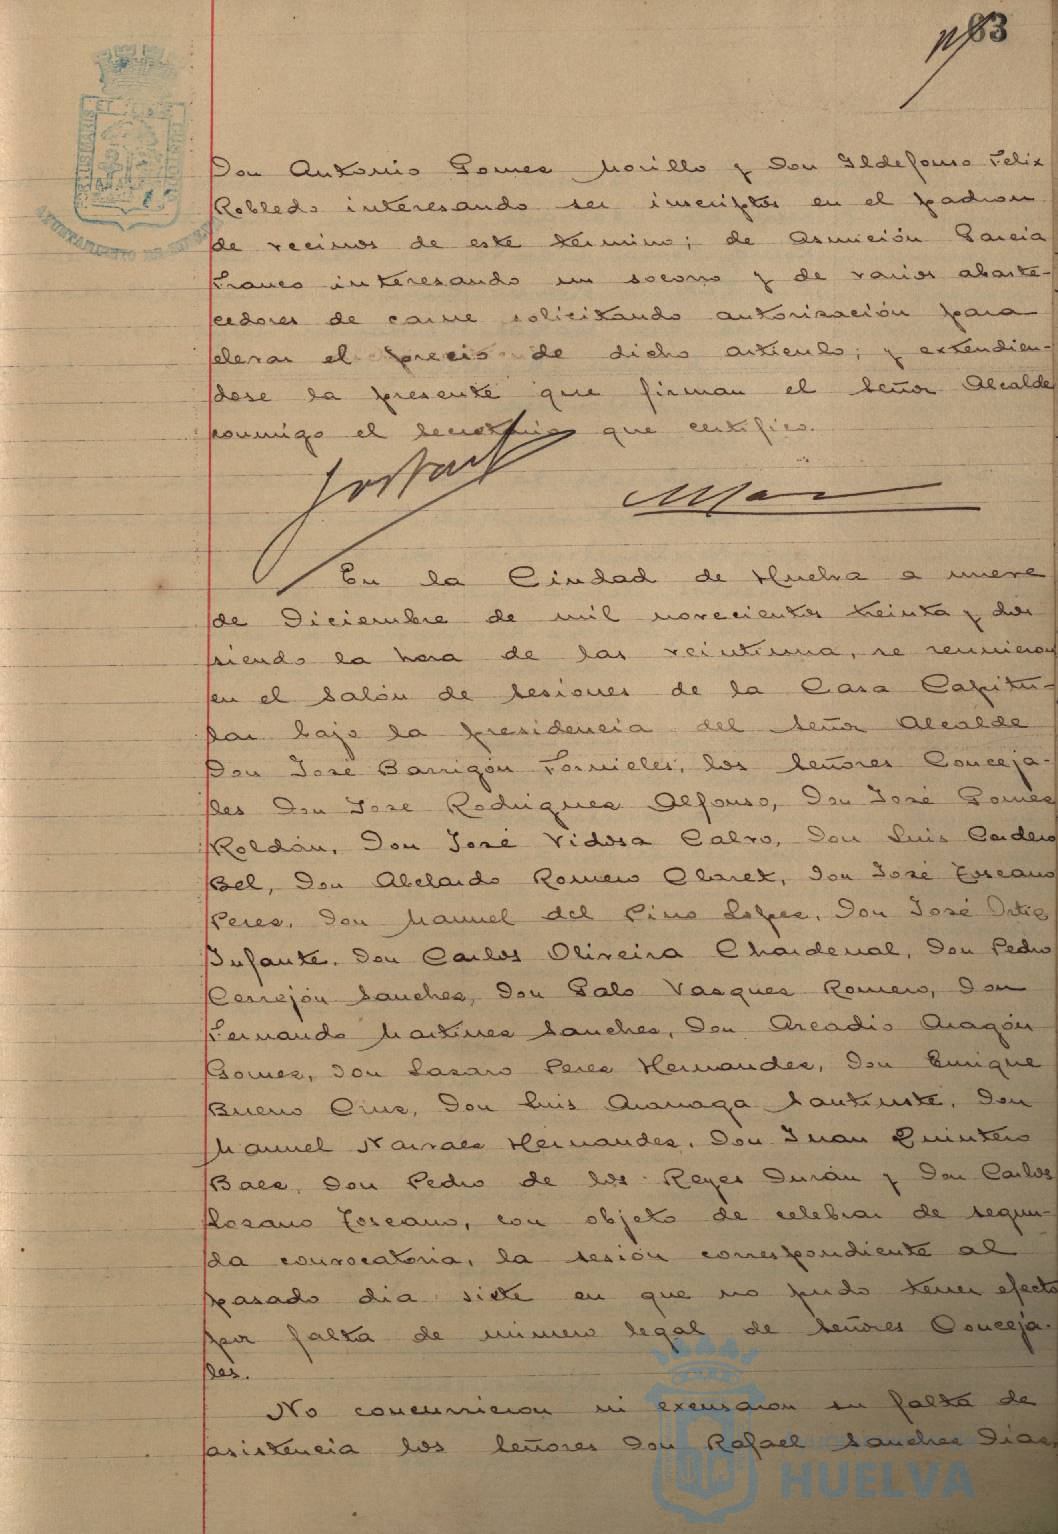 83
AYUNTAMIENTO DE HUELVA
Don Antonio Gomez Morillo y Don Ildefonso Felix
Robledo interesando ser inscriptos en el padron
de vecinos de este termino; de Asunción Garcia
Franco interesando un socorro y de varios abaste-
cedores de carne solicitando autorización para
elevar el precio de dicho articulo; y extendien-
dose la presente que firman el Señor Alcalde
conmigo el Secretario que certifico.
En la Ciudad de Huelva a nueve
de Diciembre de mil novecientos treinta y dos
siendo la hora de las veintiuna, se reunieron
en el Salón de Sesiones de la Casa Capitu-
lar bajo la presidencia del Señor Alcalde
Don José Barrigón Fornieles, los Señores Conceja-
les Don Jose Rodriguez Alfonso, Don José Gomez
Roldán, Don José Vidosa Calvo, Don Luis Cordero
Bel, Don Abelardo Romero Claret, Don José Toscano
Perez, Don Manuel del Pino Lopez, Don José Ortiz
Infante, Don Carlos Oliveira Chardenal, Don Pedro
Cerrejón Sanchez, Don Galo Vazquez Romero, Don
Fernando Martinez Sanchez, Don Arcadio Aragón
Gomez, Don Lazaro Perez Hernandez, Don Enrique
Bueno Cruz, Don Luis Aranaga Santiuste, Don
Manuel Narvaez Hernandez, Don Juan Quintero
Baez, Don Pedro de los Reyes Durán y Don Carlos
Lozano Toscano, con objeto de celebrar de segun-
da convocatoria, la sesión correspondiente al
pasado dia siete en que no pudo tener efecto
por falta de número legal de Señores Conceja-
les.
No concurrieron ni excusaron su falta de
asistencia los Señores Don Rafael Sanchez Diaz,
HUELVA